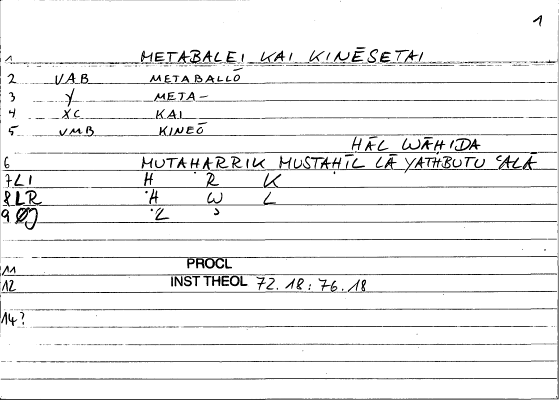 1
1 METABALEI KAI KINĒSETAI
2 VAB METABALLŌ
3 Y META-
4 XC KAI
5 VMB KINEŌ
ḤĀL WĀḤIDA
6 MUTAḤARRIK MUSTAḤĪL LĀ YATHBUTU ʿALĀ
7 LI Ḥ R K
8 LR Ḥ W L
9
11 PROCL
12 INST THEOL 72.18:76.18
14?